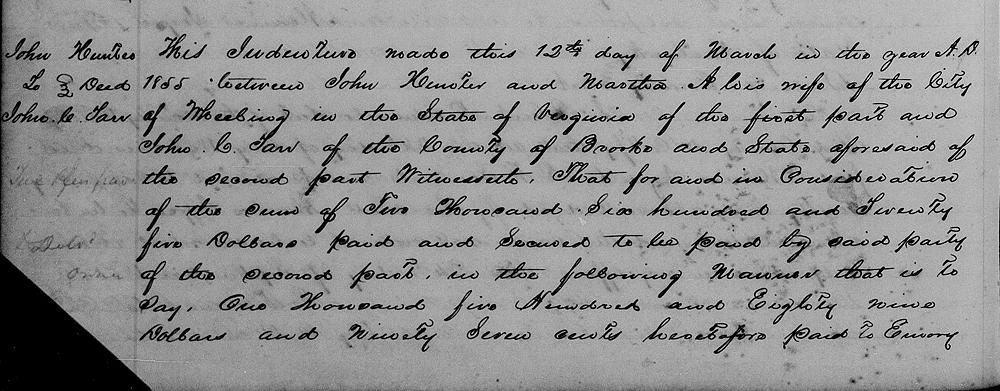 John Hunter
To } Deed
John. C. Tarr
This Indenture made this 12th day of March in the year A. D.
1855 between John Hunter and Martha A his wife of the City
of Wheeling in the State of Virginia of the first part and
John. C. Tarr of the County of Brooke and State aforesaid of
the second part Witnesseth, That for and in Consideration
of the sum of Two Thousand Six hundred and Twenty
five Dollars paid and Secured to be paid by said party
of the second part, in the following Manner that is to
say, One Thousand five Hundred and Eighty nine
Dollars and Ninety Seven cents heretofore paid to Emory